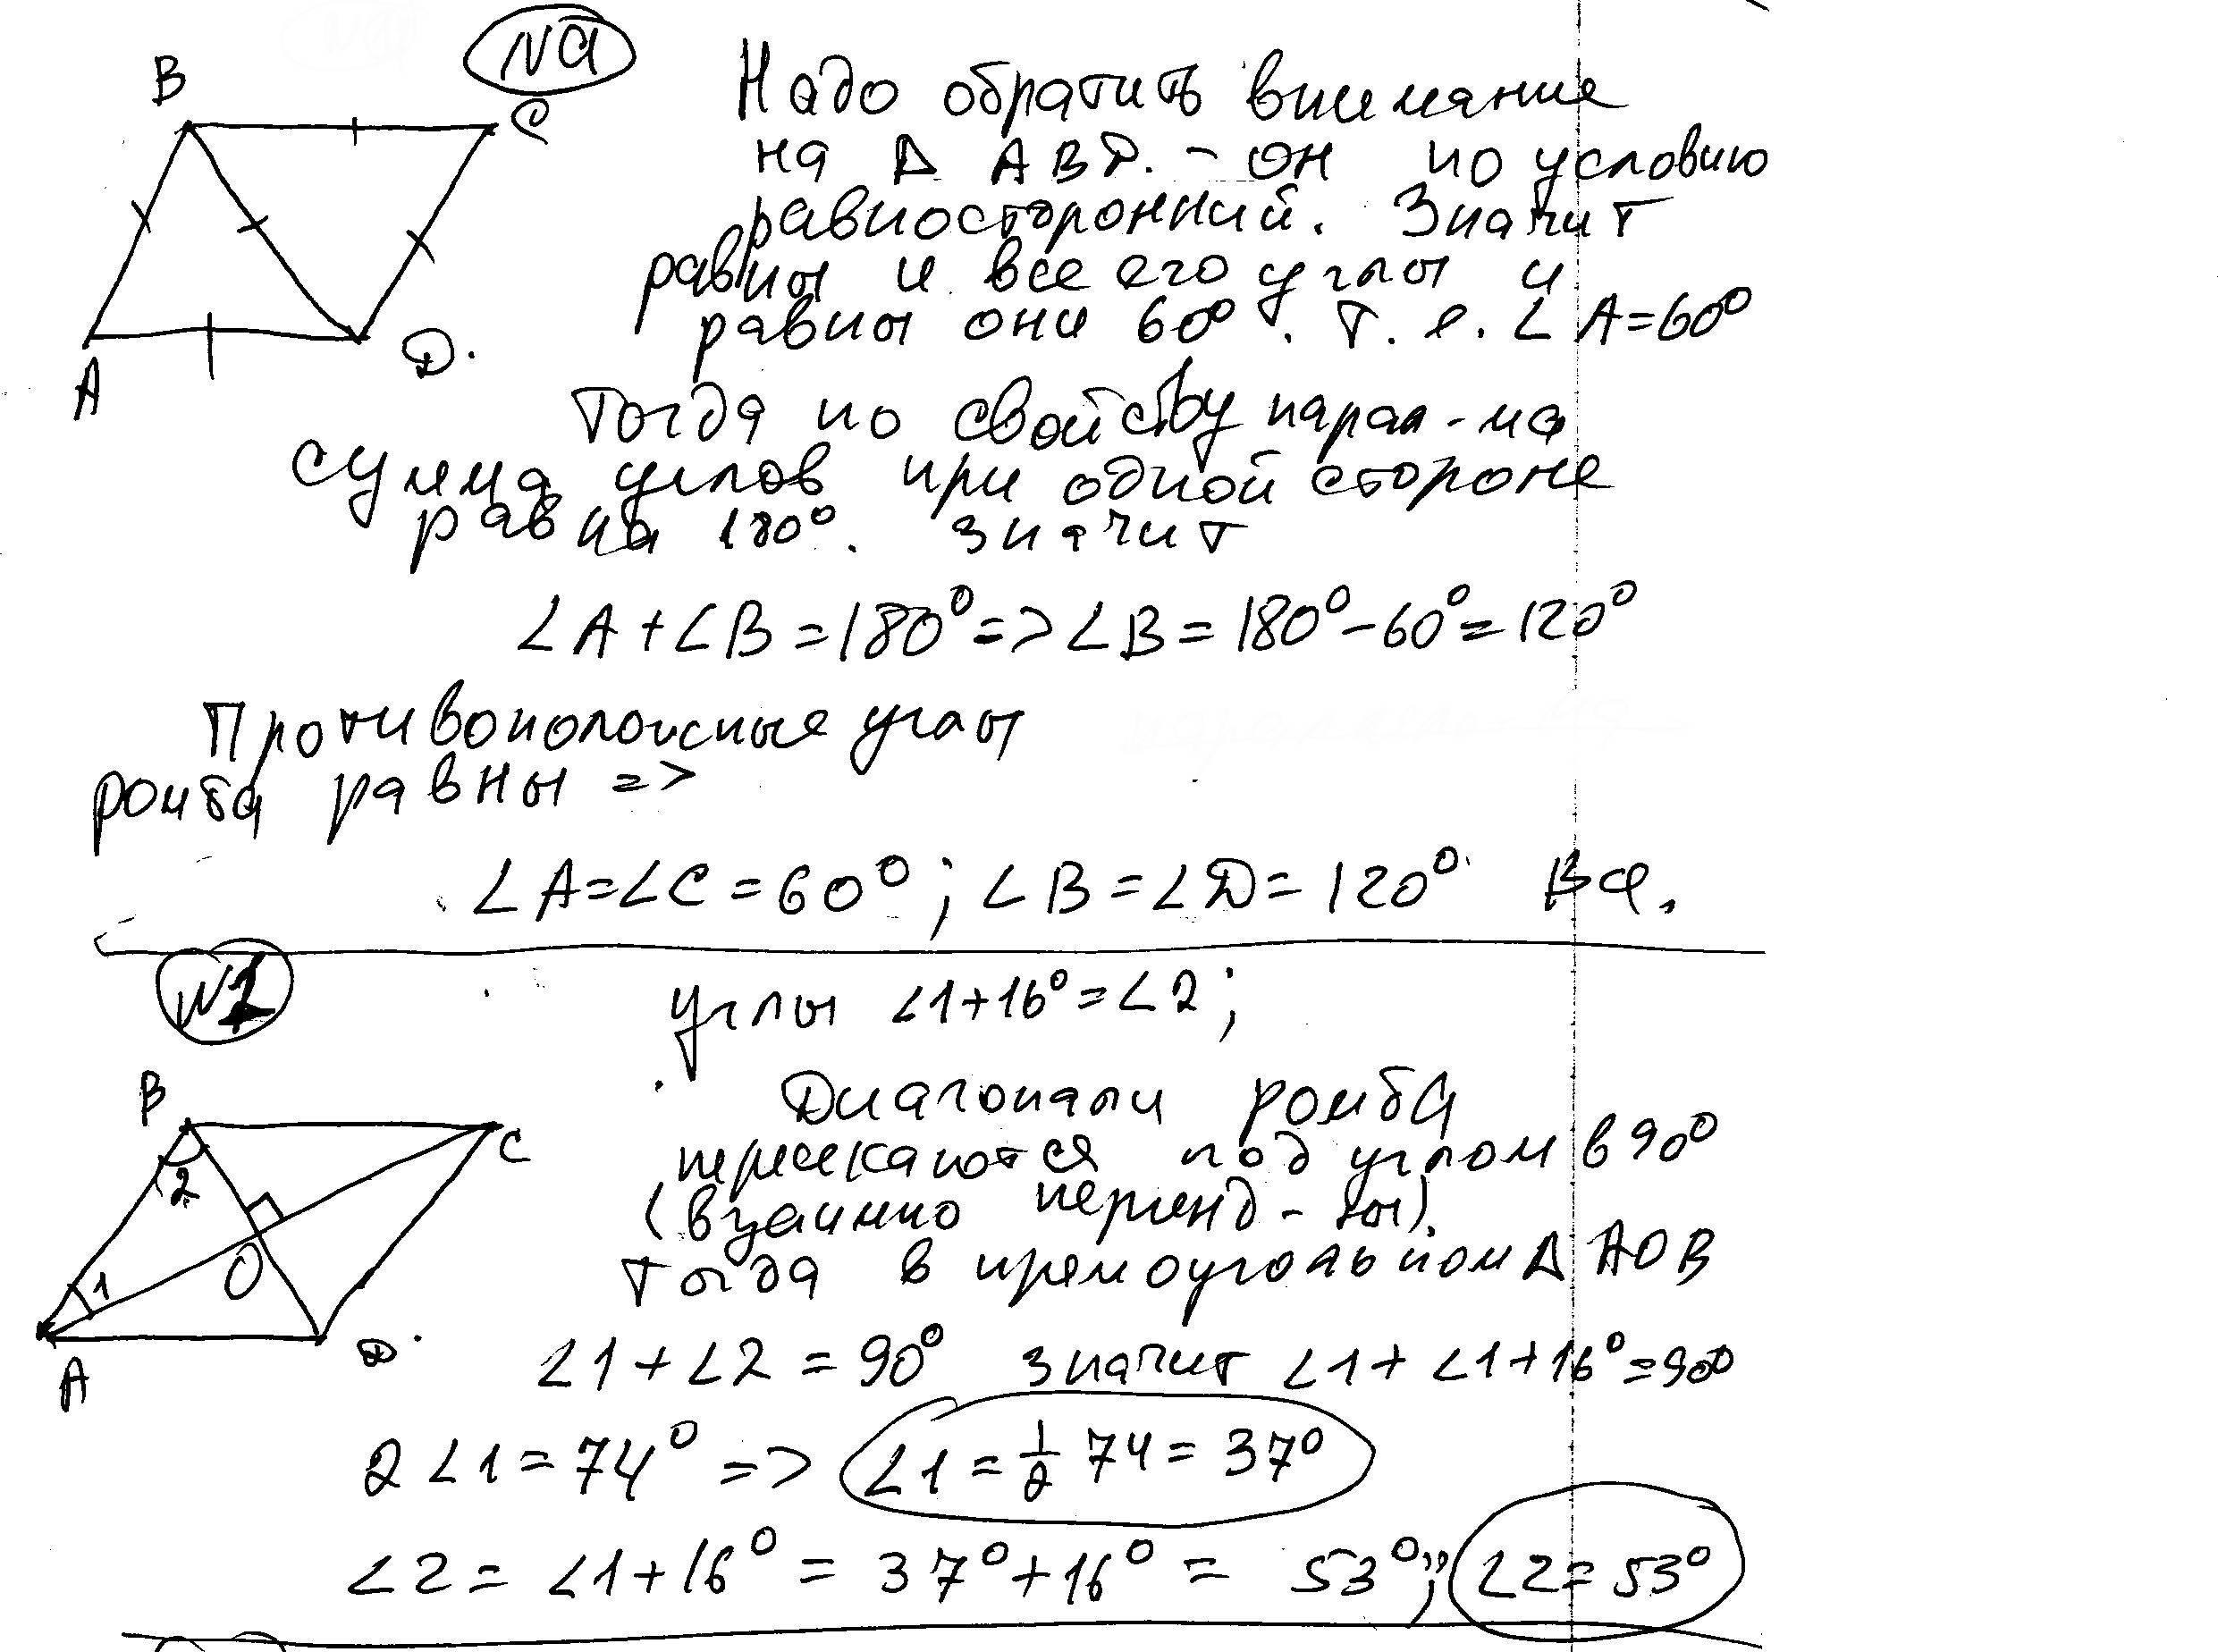 Nа
B
C
A
D.
Надо обратить внимание
на Δ ABD. – он по условию
равносторонний. Значит
равны и все его углы и
равны они 60°. Т. е. ∠A=60°
Тогда по свойству парал-ма
сумма углов при одной стороне
равна 180°. значит
∠A+∠B=180° => ∠B=180°-60°=120°
Противоположные углы
ромба равны =>
∠A=∠C=60°; ∠B=∠D=120° Все.
N1
углы ∠1+16°=∠2;
B
C
2
1
O
A
D.
Диагонали ромба
пересекаются под углом в 90°
(взаимно перпенд-ны).
Тогда в прямоугольном Δ AOB
∠1+∠2=90° значит ∠1+∠1+16°=90°
2∠1=74° => ∠1=1/2 74=37°
∠2=∠1+16°=37°+16°=53°; ∠2=53°